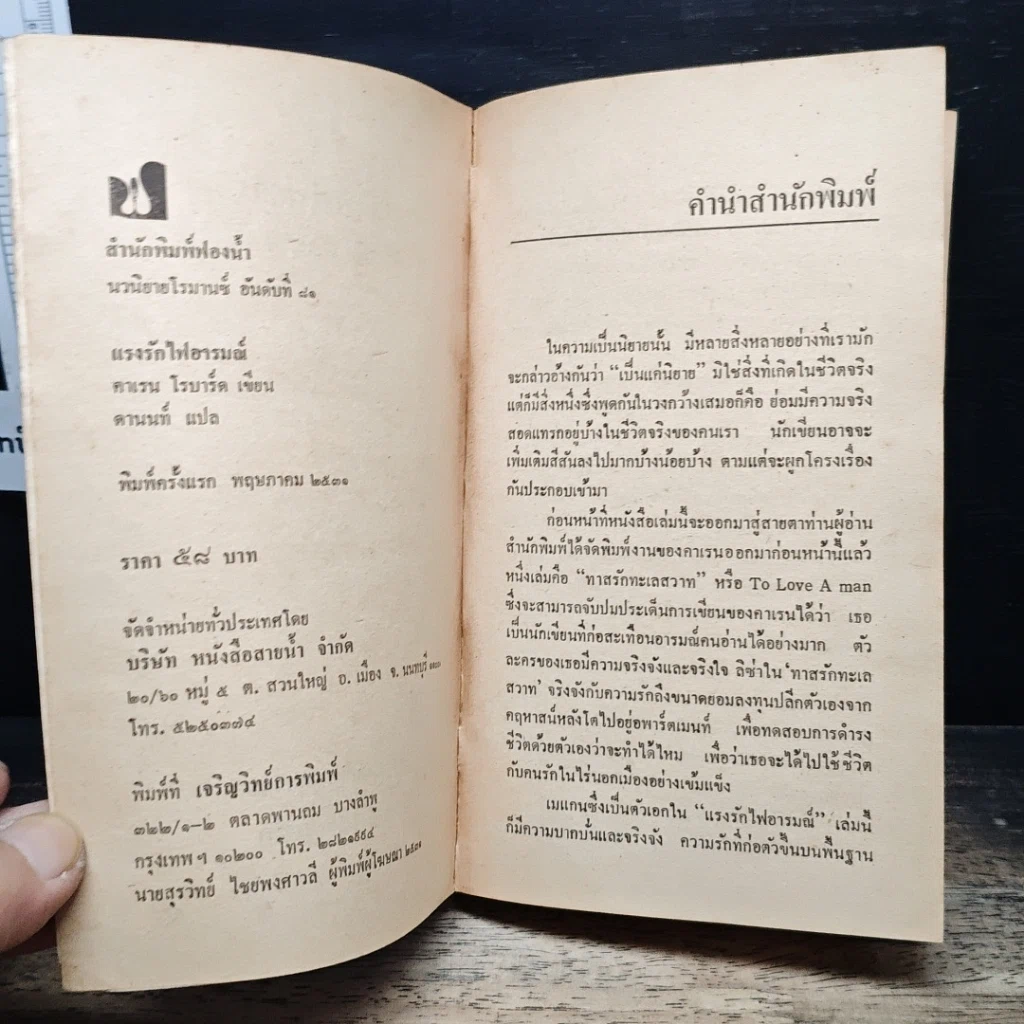 สำนักพิมพ์ฟองน้ำ
นวนิยายโรมานซ์ อันดับที่ ๘๑
แรงรักไฟอารมณ์
คาเรน โรบาร์ด เขียน
ดานนท์ แปล
พิมพ์ครั้งแรก พฤษภาคม ๒๕๓๑
ราคา ๕๘ บาท
จัดจำหน่ายทั่วประเทศโดย
บริษัท หนังสือสายน้ำ จำกัด
๒๐/๖๐ หมู่ ๕ ต. สวนใหญ่ อ. เมือง จ. นนทบุรี
โทร. ๕๒๕๐๓๗๔
พิมพ์ที่ เจริญวิทย์การพิมพ์
๓๒๒/๑-๒ ตลาดพานถม บางลำพู
กรุงเทพ ฯ ๑๐๒๐๐ โทร. ๒๘๒๑๙๙๔
นายสุรวิทย์ ไชยพงศาวลี ผู้พิมพ์ผู้โฆษณา ๒๕๓๑
คำนำสำนักพิมพ์
ในความเป็นนิยายนั้น มีหลายสิ่งหลายอย่างที่เรามัก
จะกล่าวอ้างกันว่า “เป็นแค่นิยาย” มิใช่สิ่งที่เกิดในชีวิตจริง
แต่ก็มีสิ่งหนึ่งซึ่งพูดกันในวงกว้างเสมอก็คือ ย่อมมีความจริง
สอดแทรกอยู่บ้างในชีวิตจริงของคนเรา นักเขียนอาจจะ
เพิ่มเติมสีสันลงไปมากบ้างน้อยบ้าง ตามแต่จะผูกโครงเรื่อง
กันประกอบเข้ามา
ก่อนหน้าที่หนังสือเล่มนี้จะออกมาสู่สายตาท่านผู้อ่าน
สำนักพิมพ์ได้จัดพิมพ์งานของคาเรนออกมาก่อนหน้านี้แล้ว
หนึ่งเล่มคือ “ทาสรักทะเลสวาท” หรือ To Love A man
ซึ่งจะสามารถจับปมประเด็นการเขียนของคาเรนได้ว่า เธอ
เป็นนักเขียนที่ก่อสะเทือนอารมณ์คนอ่านได้อย่างมาก ตัว
ละครของเธอมีความจริงจังและจริงใจ ลิซ่าใน ‘ทาสรักทะเล
สวาท’ จริงจังกับความรักถึงขนาดยอมลงทุนปลีกตัวเองจาก
คฤหาสน์หลังโตไปอยู่อพาร์ตเมนท์ เพื่อทดสอบการดำรง
ชีวิตด้วยตัวเองว่าจะทำได้ไหม เพื่อว่าเธอจะได้ไปใช้ชีวิต
กับคนรักในไร่นอกเมืองอย่างเข้มแข็ง
เมแกนซึ่งเป็นตัวเอกใน “แรงรักไฟอารมณ์” เล่มนี้
ก็มีความบากบั่นและจริงจัง ความรักที่ก่อตัวขึ้นบนพื้นฐาน